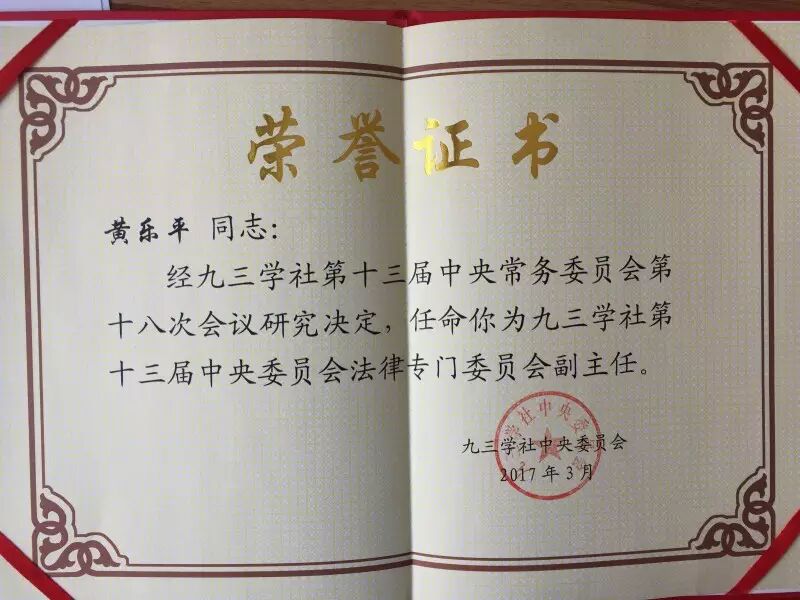 荣誉证书
黄乐平 同志：
经九三学社第十三届中央常务委员会第
十八次会议研究决定，任命你为九三学社第
十三届中央委员会法律专门委员会副主任。
九三学社中央委员会
2017年3月